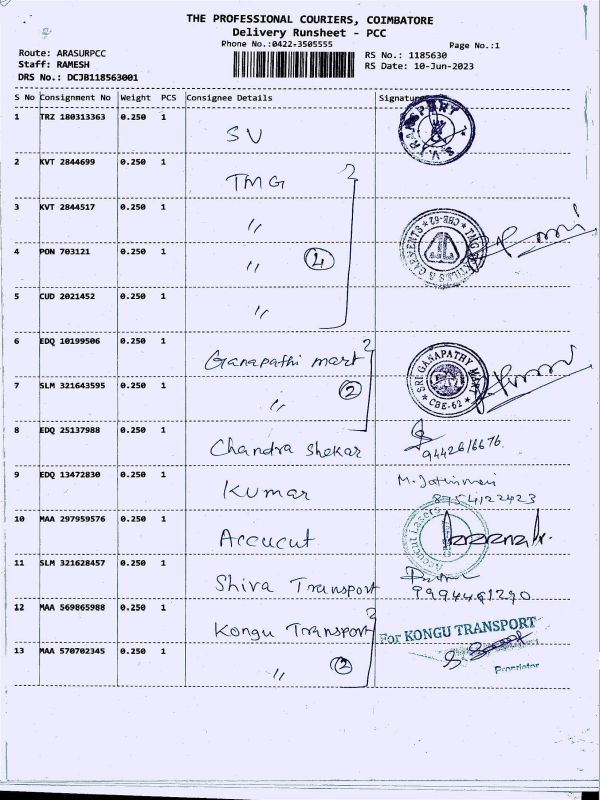 THE PROFESSIONAL COURIERS, COIMBATORE
Delivery Runsheet - PCC
Phone No.:0422-3505555
Page No.:1
Route: ARASURPCC
RS No.: 1185630
Staff: RAMESH
RS Date: 10-Jun-2023
DRS No.: DCJB118563001
S No Consignment No Weight PCS Consignee Details Signature
1 TRZ 180313363 0.250 1 SV S.V. TRANSPORT
2 KVT 2844699 0.250 1 TMG
3 KVT 2844517 0.250 1 〃 TMG TEXTILES & GARMENTS * CBE-62 *
4 PON 703121 0.250 1 〃 4
5 CUD 2021452 0.250 1 〃
6 EDQ 10199506 0.250 1 Ganapathi mart SRI GANAPATHY MART * CBE-62 *
7 SLM 321643595 0.250 1 〃 2
8 EDQ 25137988 0.250 1 Chandra Shekar 9442616676.
9 EDQ 13472830 0.250 1 Kumar M. Jothimani
8754122423
10 MAA 297959576 0.250 1 Accucut Accucut Lasers
11 SLM 321628457 0.250 1 Shiva Transport
9994491290
12 MAA 569865988 0.250 1 Kongu Transport For KONGU TRANSPORT
13 MAA 570702345 0.250 1 〃 2 Proprietor